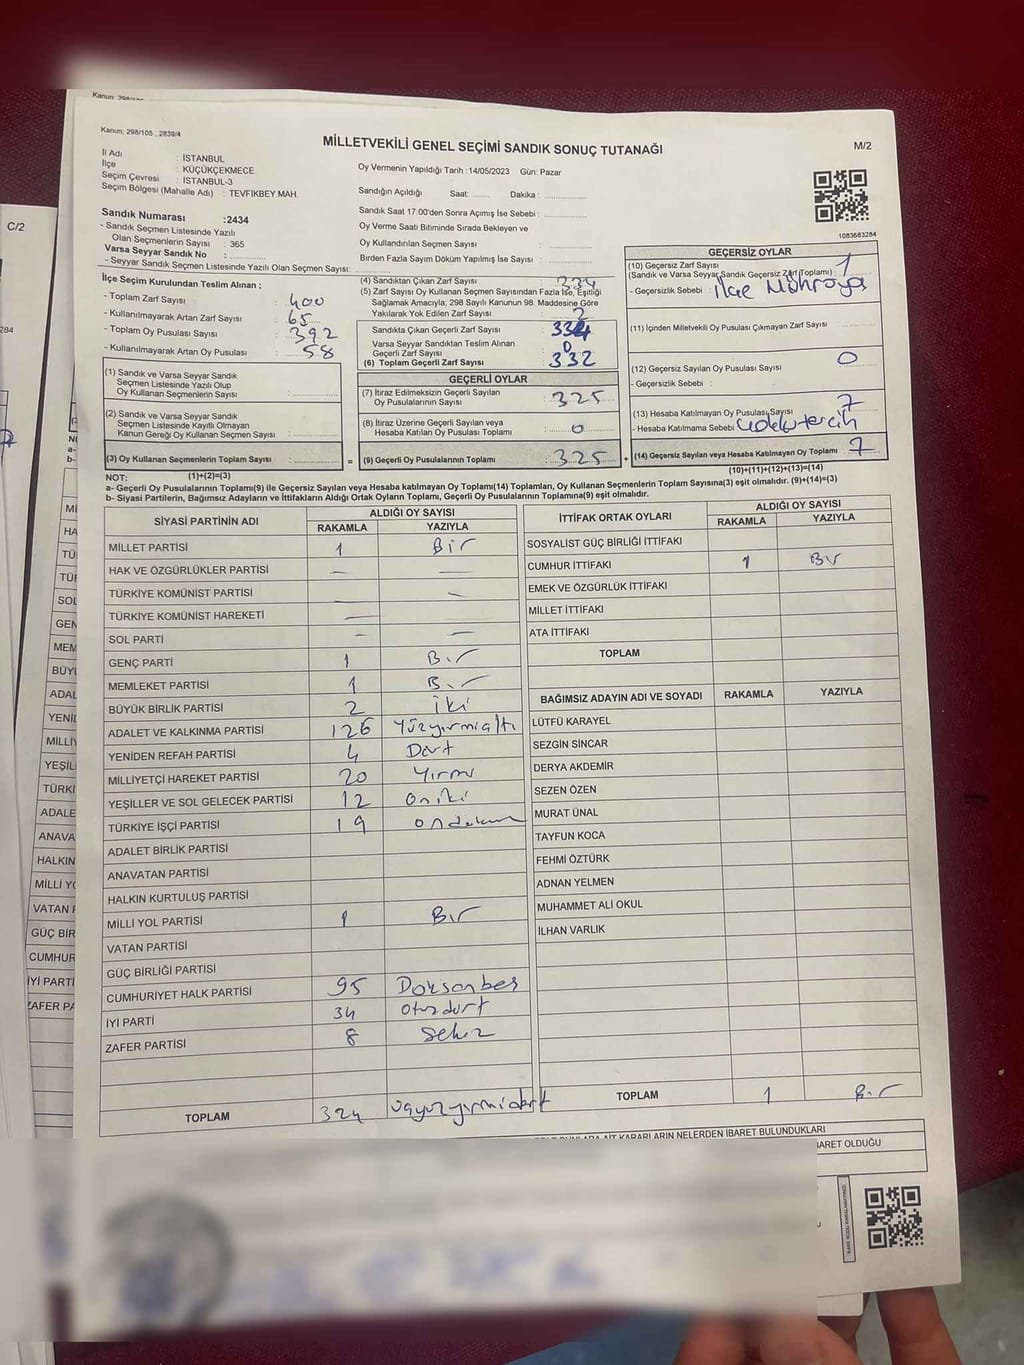 Kanun; 298/105 , 2839/4
MİLLETVEKİLİ GENEL SEÇİMİ SANDIK SONUÇ TUTANAĞI
M/2
İl Adı : İSTANBUL
İlçe : KÜÇÜKÇEKMECE
Seçim Çevresi : İSTANBUL-3
Seçim Bölgesi (Mahalle Adı) : TEVFİKBEY MAH.
Oy Vermenin Yapıldığı Tarih :14/05/2023 Gün: Pazar
Sandığın Açıldığı Saat: ........ Dakika : ....................
Sandık Saat 17:00'den Sonra Açımış İse Sebebi : ....................
Oy Verme Saati Bitiminde Sırada Bekleyen ve
Oy Kullandırılan Seçmen Sayısı : ....................
Birden Fazla Sayım Döküm Yapılmış İse Sayısı : ....................
1083683284
Sandık Numarası :2434
- Sandık Seçmen Listesinde Yazılı
Olan Seçmenlerin Sayısı : 365
Varsa Seyyar Sandık No : ....................
- Seyyar Sandık Seçmen Listesinde Yazılı Olan Seçmen Sayısı: ....................
İlçe Seçim Kurulundan Teslim Alınan ;
- Toplam Zarf Sayısı : 400
- Kullanılmayarak Artan Zarf Sayısı : 65
- Toplam Oy Pusulası Sayısı : 392
- Kullanılmayarak Artan Oy Pusulası : 58
(1) Sandık ve Varsa Seyyar Sandık
Seçmen Listesinde Yazılı Olup
Oy Kullanan Seçmenlerin Sayısı :
(2) Sandık ve Varsa Seyyar Sandık
Seçmen Listesinde Kayıtlı Olmayan
Kanun Gereği Oy Kullanan Seçmen Sayısı :
(3) Oy Kullanan Seçmenlerin Toplam Sayısı : =
(4) Sandıktan Çıkan Zarf Sayısı : 334
(5) Zarf Sayısı Oy Kullanan Seçmen Sayısından Fazla İse, Eşitliği
Sağlamak Amacıyla; 298 Sayılı Kanunun 98. Maddesine Göre
Yakılarak Yok Edilen Zarf Sayısı : 2
Sandıkta Çıkan Geçerli Zarf Sayısı : 334
Varsa Seyyar Sandıktan Teslim Alınan
Geçerli Zarf Sayısı : 0
(6) Toplam Geçerli Zarf Sayısı : 332
GEÇERLİ OYLAR
(7) İtiraz Edilmeksizin Geçerli Sayılan
Oy Pusulalarının Sayısı : 325
(8) İtiraz Üzerine Geçerli Sayılan veya
Hesaba Katılan Oy Pusulası Toplamı : 0
(9) Geçerli Oy Pusulalarının Toplamı : 325 +
GEÇERSİZ OYLAR
(10) Geçersiz Zarf Sayısı
(Sandık ve Varsa Seyyar Sandık Geçersiz Zarf Toplamı) : 1
- Geçersizlik Sebebi :
(11) İçinden Milletvekili Oy Pusulası Çıkmayan Zarf Sayısı :
(12) Geçersiz Sayılan Oy Pusulası Sayısı : 0
- Geçersizlik Sebebi :
(13) Hesaba Katılmayan Oy Pusulası Sayısı : 7
- Hesaba Katılmama Sebebi : çoklu tercih
(14) Geçersiz Sayılan veya Hesaba Katılmayan Oy Toplamı : 7
NOT: (1)+(2)=(3)
(10)+(11)+(12)+(13)=(14)
a- Geçerli Oy Pusulalarının Toplamı(9) ile Geçersiz Sayılan veya Hesaba Katılmayan Oy Toplamı(14) Toplamları, Oy Kullanan Seçmenlerin Toplam Sayısına(3) eşit olmalıdır. (9)+(14)=(3)
b- Siyasi Partilerin, Bağımsız Adayların ve İttifakların Aldığı Ortak Oyların Toplamı, Geçerli Oy Pusulalarının Toplamına(9) eşit olmalıdır.
SİYASİ PARTİNİN ADI ALDIĞI OY SAYISI
RAKAMLA YAZIYLA
MİLLET PARTİSİ 1 Bir
HAK VE ÖZGÜRLÜKLER PARTİSİ — —
TÜRKİYE KOMÜNİST PARTİSİ — —
TÜRKİYE KOMÜNİST HAREKETİ — —
SOL PARTİ — —
GENÇ PARTİ 1 Bir
MEMLEKET PARTİSİ 1 Bir
BÜYÜK BİRLİK PARTİSİ 2 İki
ADALET VE KALKINMA PARTİSİ 126 Yüzyirmialtı
YENİDEN REFAH PARTİSİ 4 Dört
MİLLİYETÇİ HAREKET PARTİSİ 20 Yirmi
YEŞİLLER VE SOL GELECEK PARTİSİ 12 Oniki
TÜRKİYE İŞÇİ PARTİSİ 19 ondokuz
ADALET BİRLİK PARTİSİ
ANAVATAN PARTİSİ
HALKIN KURTULUŞ PARTİSİ
MİLLİ YOL PARTİSİ 1 Bir
VATAN PARTİSİ
GÜÇ BİRLİĞİ PARTİSİ
CUMHURİYET HALK PARTİSİ 95 Doksanbeş
İYİ PARTİ 34 Otuzdört
ZAFER PARTİSİ 8 Sekiz
TOPLAM 324 üçyüzyirmidört
İTTİFAK ORTAK OYLARI ALDIĞI OY SAYISI
RAKAMLA YAZIYLA
SOSYALİST GÜÇ BİRLİĞİ İTTİFAKI
CUMHUR İTTİFAKI 1 Bir
EMEK VE ÖZGÜRLÜK İTTİFAKI
MİLLET İTTİFAKI
ATA İTTİFAKI
TOPLAM
BAĞIMSIZ ADAYIN ADI VE SOYADI RAKAMLA YAZIYLA
LÜTFÜ KARAYEL
SEZGİN SİNCAR
DERYA AKDEMİR
SEZEN ÖZEN
MURAT ÜNAL
TAYFUN KOCA
FEHMİ ÖZTÜRK
ADNAN YELMEN
MUHAMMET ALİ OKUL
İLHAN VARLIK
TOPLAM 1 Bir
AİT KARARLARIN NELERDEN İBARET BULUNDUKLARI
BARET OLDUĞU
C/2
284
MI
HA
TÜ
TÜF
SOL
GEN
MEM
BÜYÜ
ADAL
YENİ
MİLLİ
YEŞİL
TÜRKİ
ADALE
ANAVA
HALKIN
MİLLİ YO
VATAN P
GÜÇ BİR
CUMHUR
İYİ PARTİ
ZAFER PA